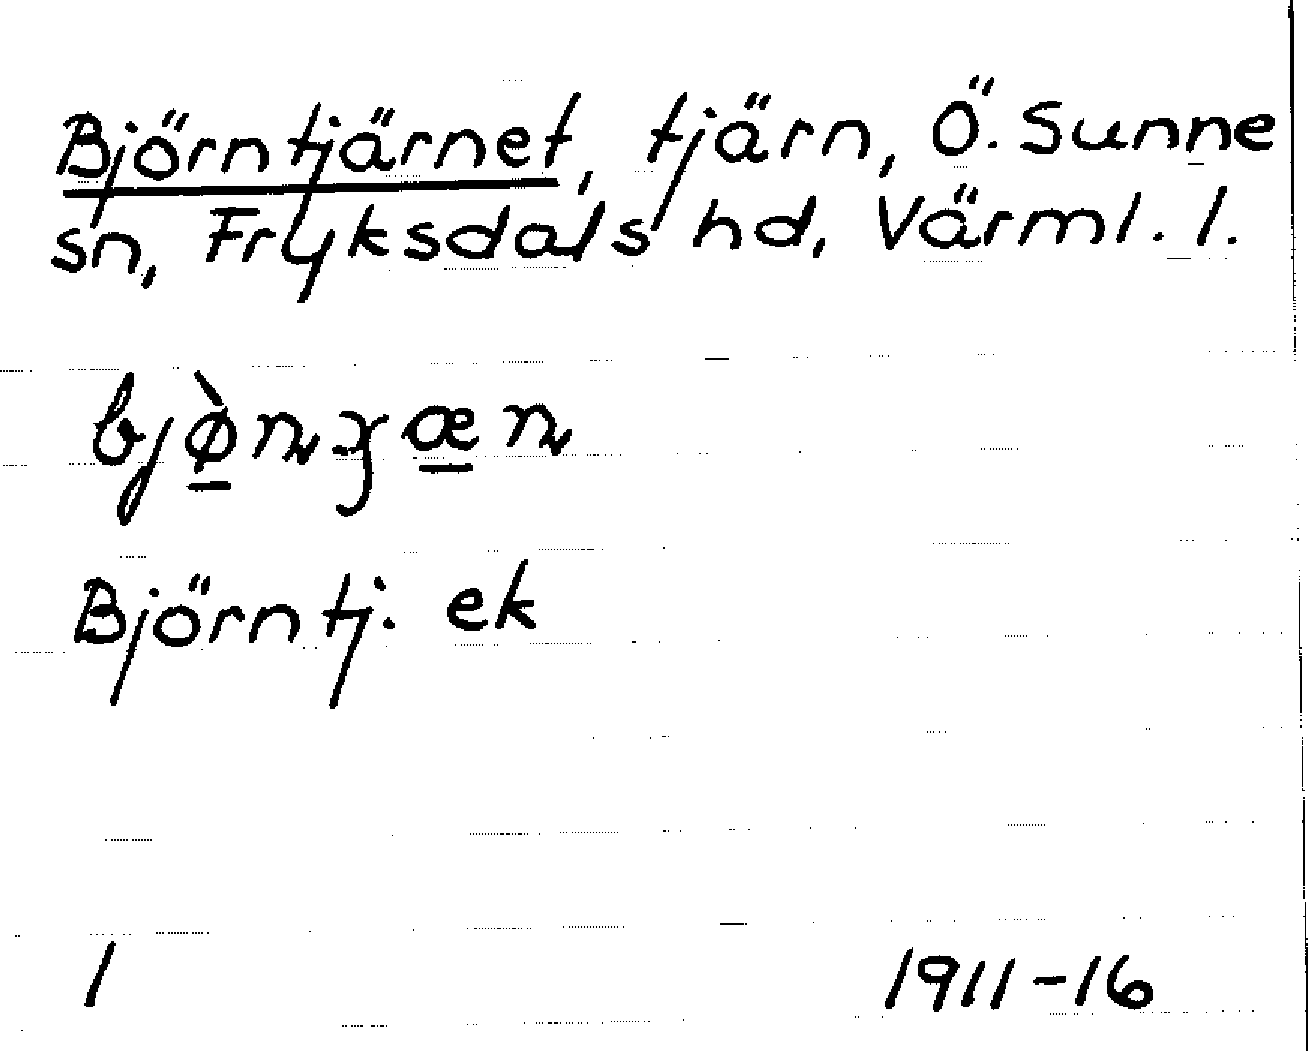 Björntjärnet, tjärn, Ö. Sunne
sn, Fryksdals hd, Värml. l.
Björntj. ek
1 1911-16